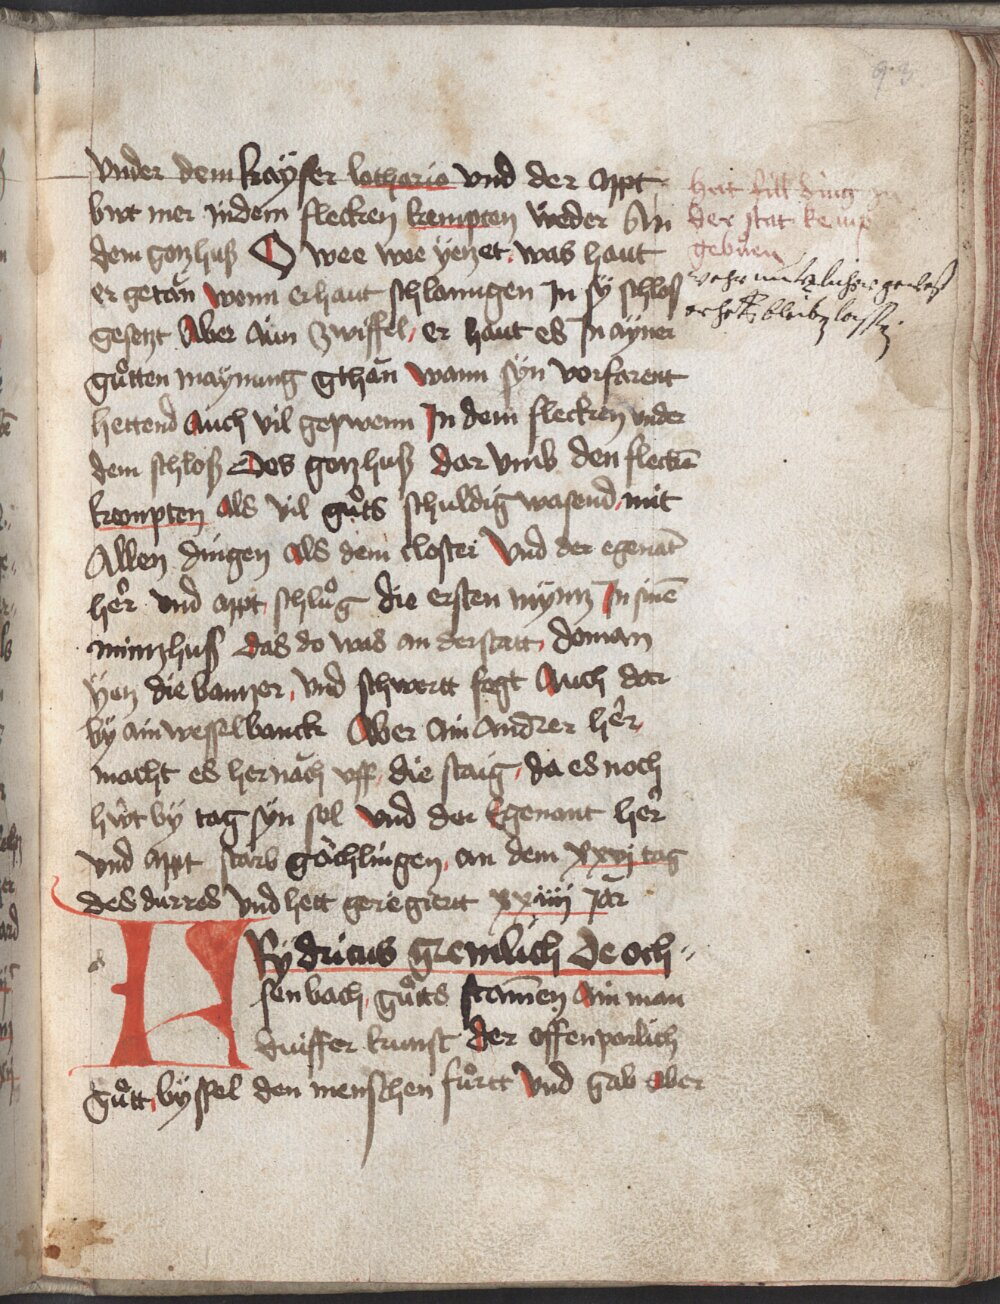 vnder dem kayser lothario vnd der appt
buwt mer in dem flecken kempten weder An
dem gotzhuß O wee wee yetzet was haut
er getän wenn er haut schlanngen In sÿ schloß
gesetzt Aber äun zwiffel er haut es In ayner
gůtten maynung gthän wann syn vorfarent
hettend Auch vil geswenn In dem flecken vnder
dem schloß Des gotzhuß dar vmb den fleckñ
kempten als vil gůts schuldig wasend mit
Allen dingen als dem closter Vnd der egenāt
her vnd appt schlůg die ersten mÿntz In sinē
mintzhuß das do was an der statt do man
yetz die banzer vnd schwertt fegt Auch dar
by ain wesselbanck Aber ain andrer her
macht es hernäch vff die staig da es noch
hüt by tag syn sol vnd der Egenant her
vnd appt starb gächlingen an dem xxvj tag
des durres vnd hett geregiertt xxiiij Jar
HAÿdricus gremlich De och
senbach gůtts stamen Ain man
duiffer kunst der offenporlich
gůtt byssel den menschen fůrtt Vnd gab aber
hat fill ding
der stat kemp
gebuen